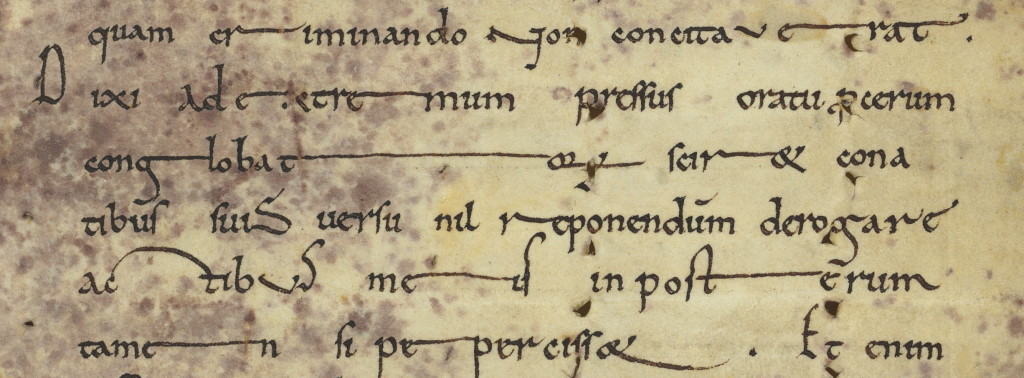 quam criminando non concitaverat.
Dixi ad extremum pressus oratu procerum
conglobatoque scire & cona
tibus suis versu nil reponendum derogare
actibus meis in posterum
tamen si pepercisset. Et enim